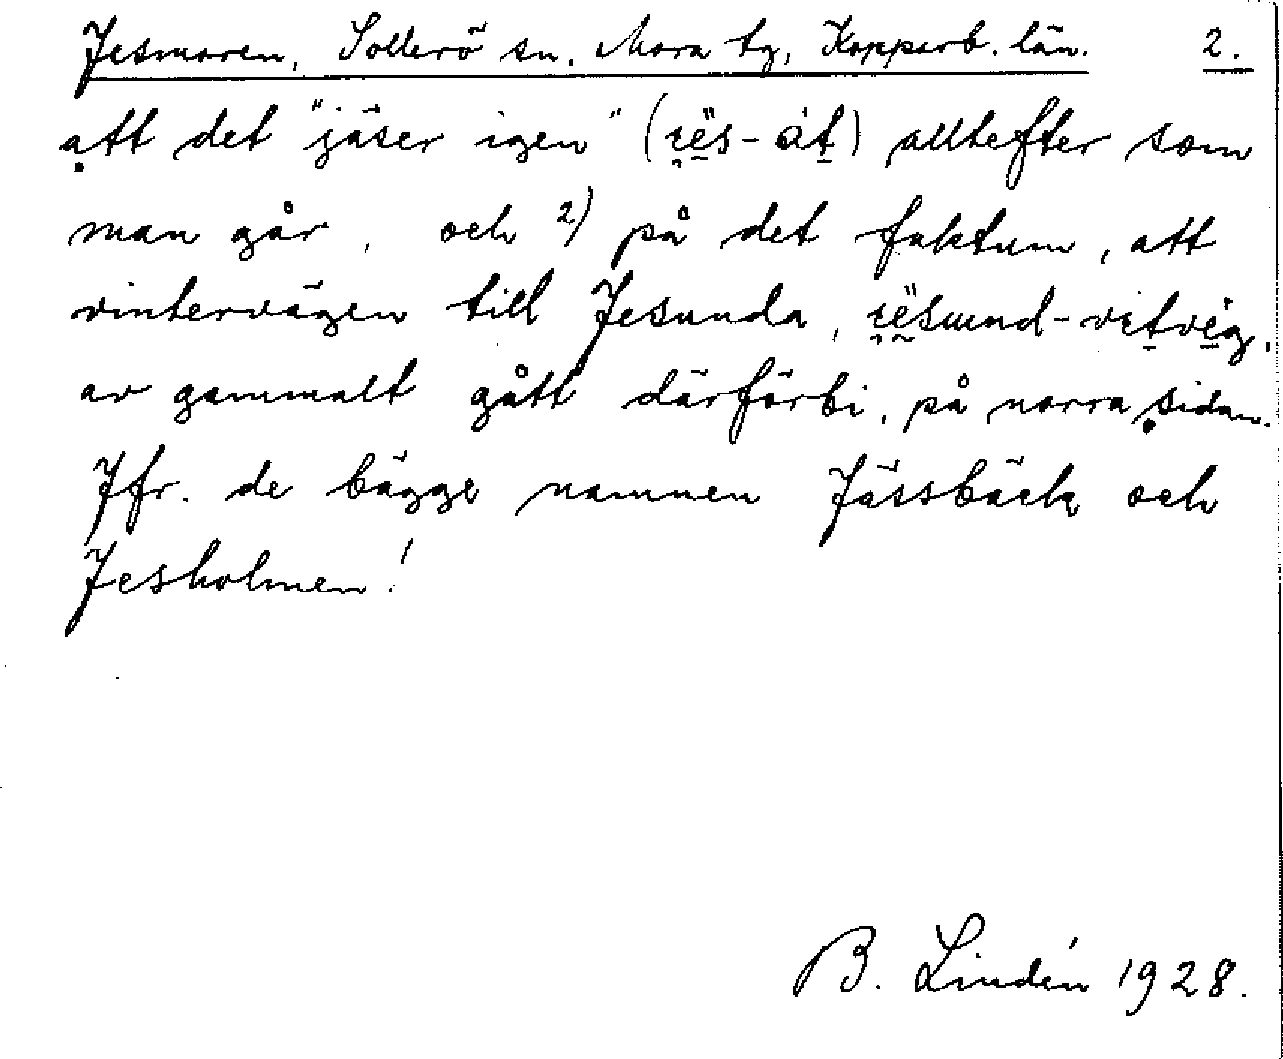 Jesmoren, Sollerö sn. Mora tg, Kopparb. län. 2.
att det "jäser igen" (i̯ës-át) allt efter som
man går, och 2) på det faktum, att
vintervägen till Jesunda,
av gammalt gått därförbi, på norra sidan.
Jfr. de bägge namnen Jässbäck och
Jesholmen!
B. Lindén 1928.